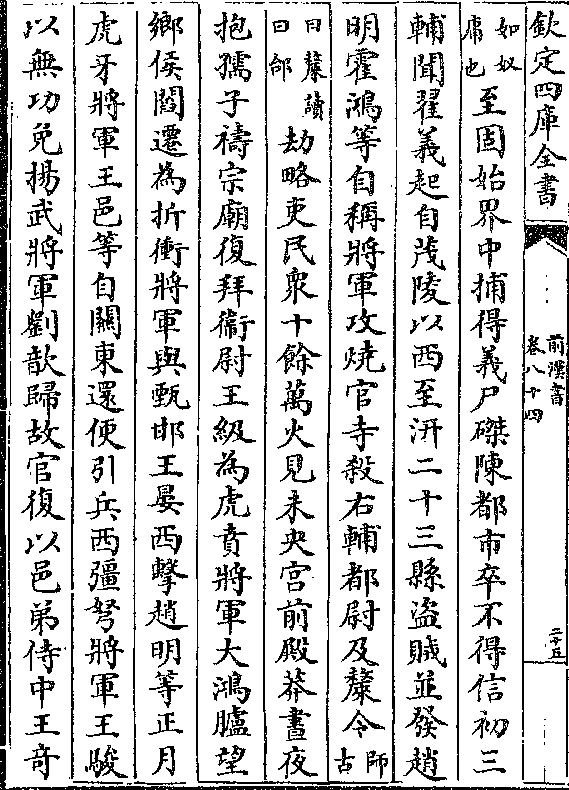 欽定四庫全書
前漢書
卷八十四
二十五
如奴
庸也至固始界中捕得義尸磔陳都市卒不得信初三
輔聞翟義起自茂陵以西至汧二十三縣盜賊並發趙
明霍鴻等自稱將軍攻燒官寺殺右輔都尉及斄令師古
曰斄讀
曰邰劫略吏民衆十餘萬火見未央宮前殿莽晝夜
抱孺子禱宗廟復拜衞尉王級為虎賁將軍大鴻臚望
鄉侯閻遷為折衝將軍與甄邯王晏西擊趙明等正月
虎牙將軍王邑等自關東還便引兵西彊弩將軍王駿
以無功免揚武將軍劉歆歸故官復以邑弟侍中王奇